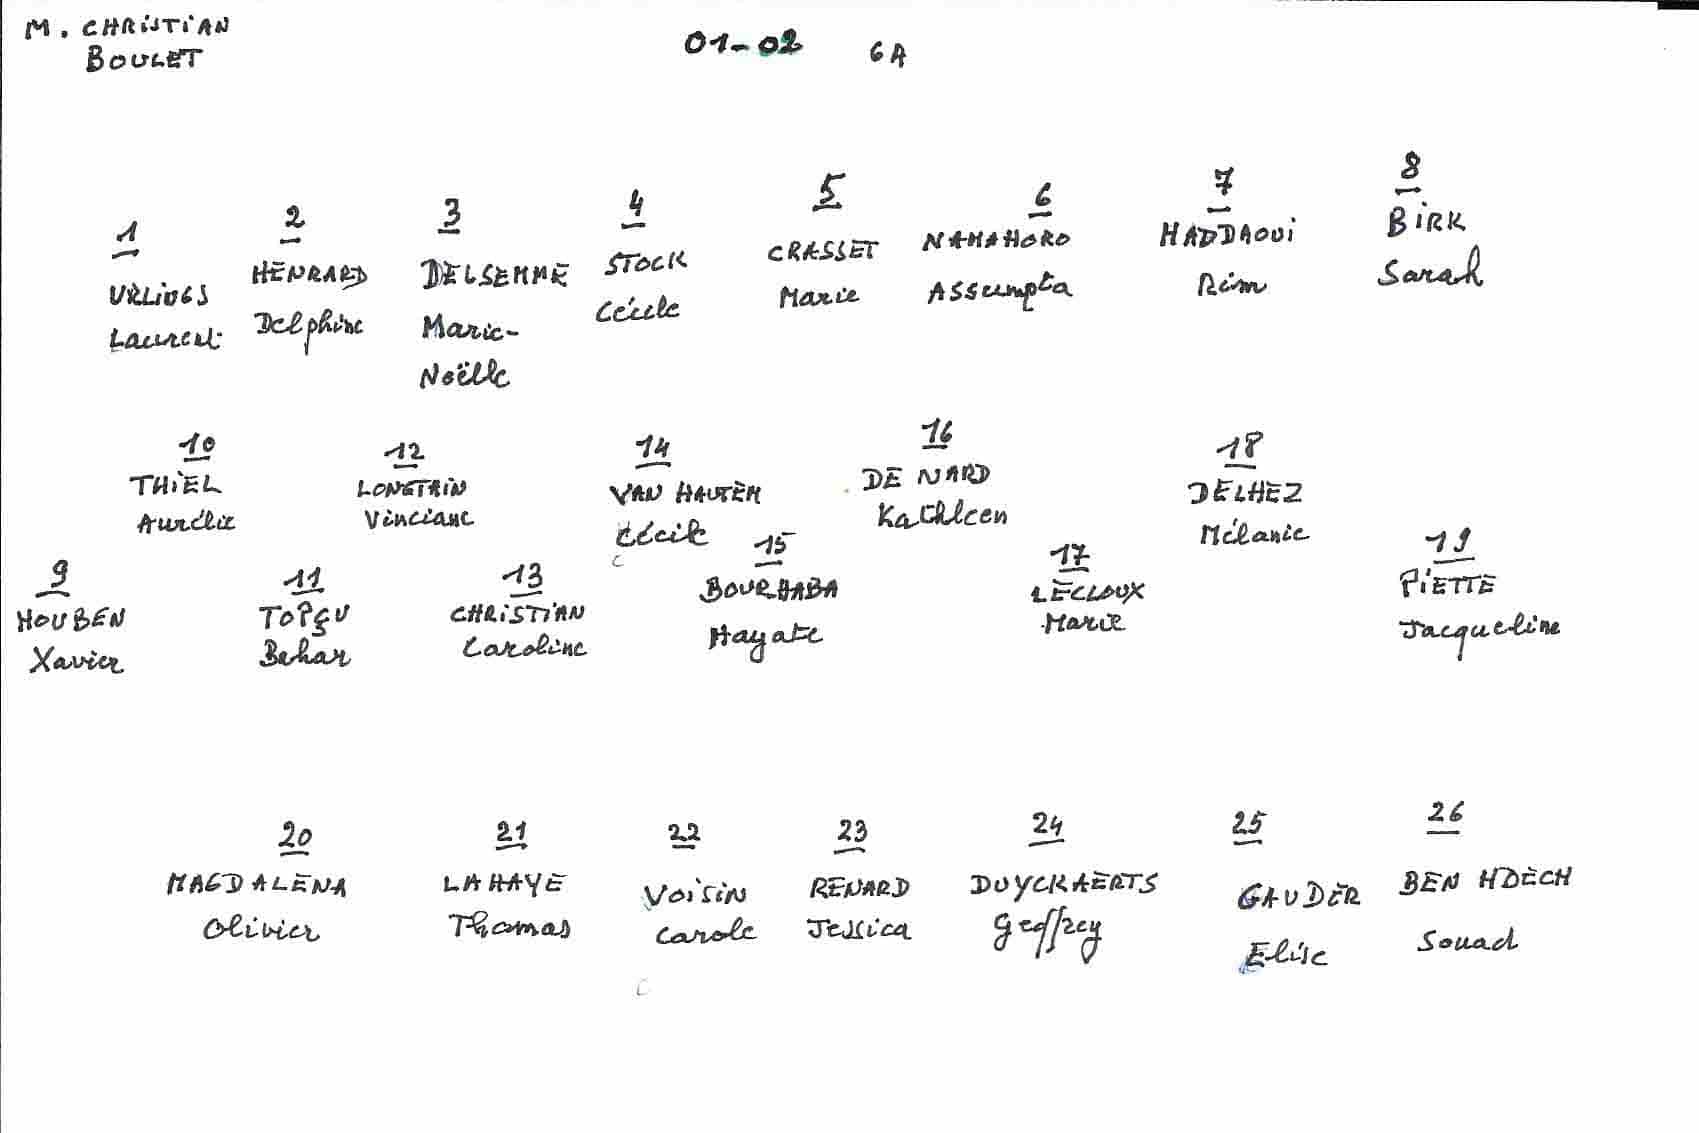 M. CHRISTIAN
BOULET
01-02 6A
1
URLINGS
Laurent
2
HENRARD
Delphine
3
DELSEMME
Marie-
Noëlle
4
STOCK
Cécile
5
CRASSET
Marie
6
NAMAHORO
Assumpta
7
HADDAOUI
Rim
8
BIRK
Sarah
9
HOUBEN
Xavier
10
THIEL
Aurélie
11
TOPÇU
Bahar
12
LONGTRIN
Vinciane
13
CHRISTIAN
Caroline
14
VAN HAUTEM
Cécile
15
BOURHABA
Hayate
16
DE NARD
Kathleen
17
LECLOUX
Marie
18
DELHEZ
Mélanie
19
PIETTE
Jacqueline
20
MAGDALENA
Olivier
21
LAHAYE
Thomas
22
VOISIN
Carole
23
RENARD
Jessica
24
DUYCKAERTS
Geffrey
25
GAUDER
Elise
26
BEN HDECH
Souad